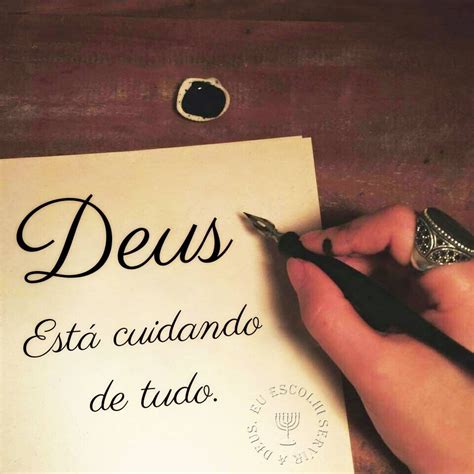 Deus
Está cuidando
de tudo.
DEUS, EU ESCOLHI SERVIR A